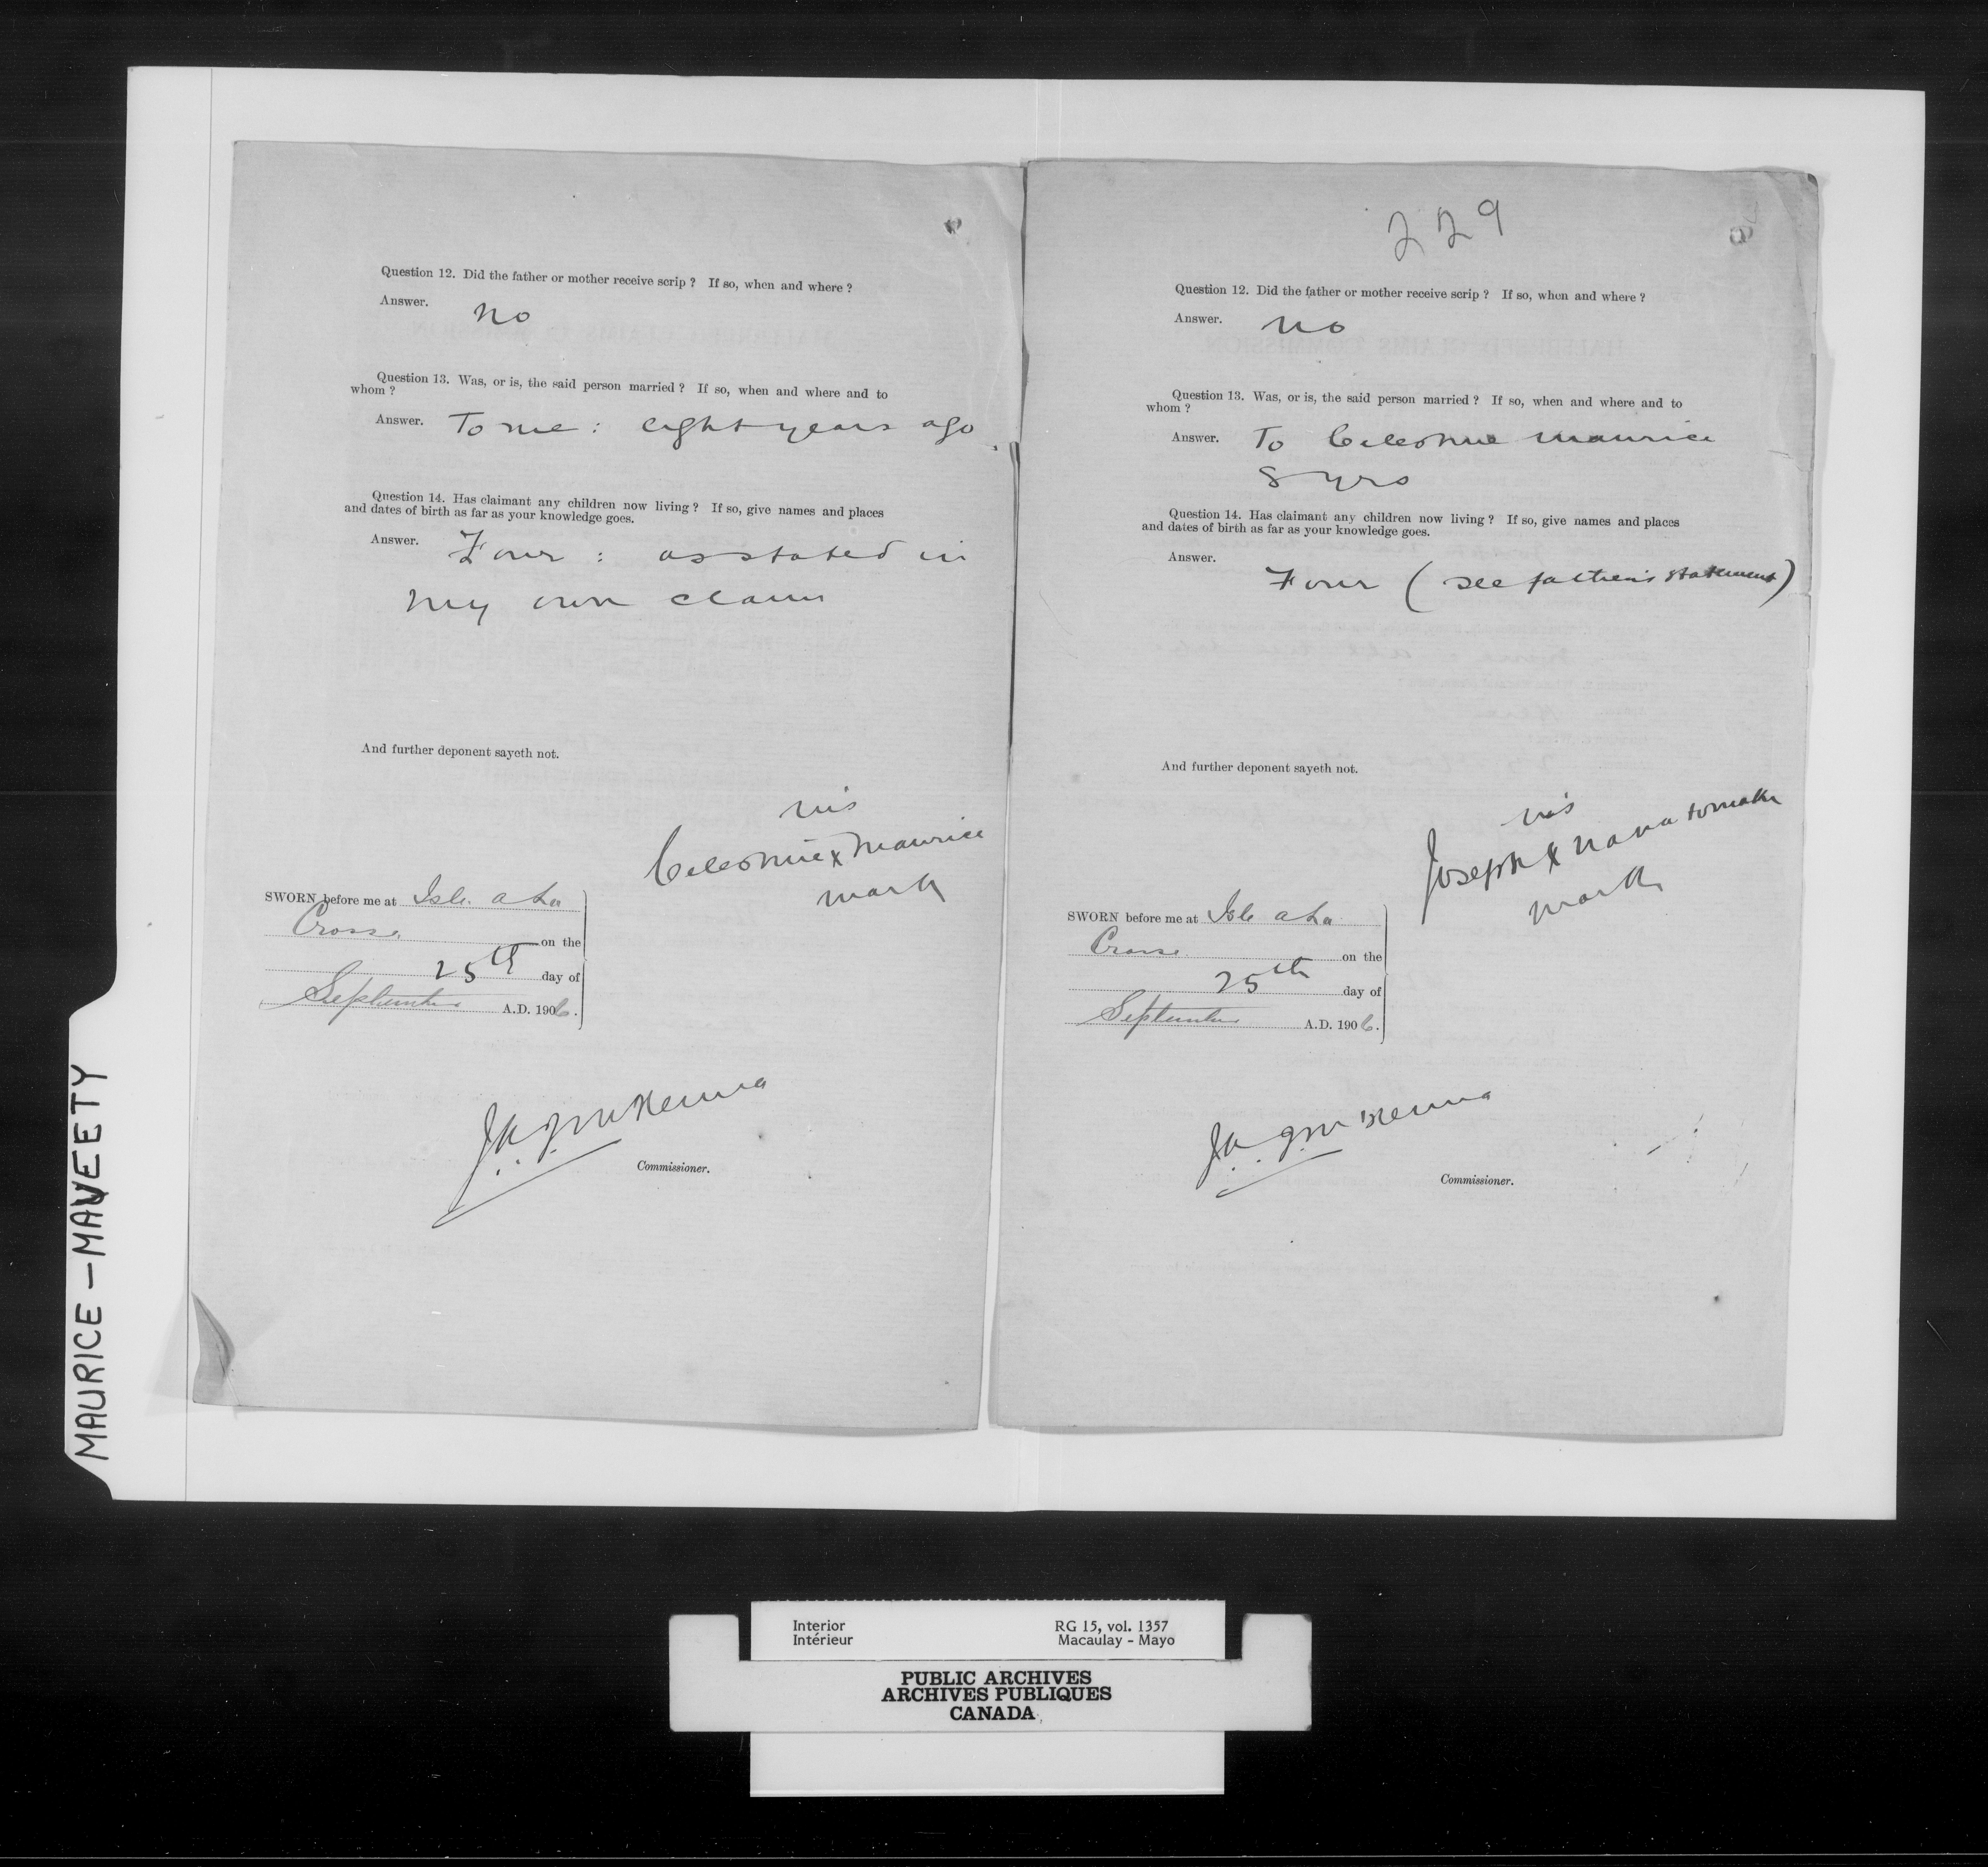 Question 12. Did the father or mother receive scrip ? If so, when and where ?
Answer. no
Question 13. Was, or is, the said person married ? If so, when and where and to
whom ?
Answer. To me : eight years ago
Question 14. Has claimant any children now living ? If so, give names and places
and dates of birth as far as your knowledge goes.
Answer. Four : as stated in
my own claim
And further deponent sayeth not.
his
x Maurice
mark
SWORN before me at Isle a La
Crosse
on the
25th day of
September A.D. 1906.
J.A.J. McKenna
Commissioner.
229
Question 12. Did the father or mother receive scrip ? If so, when and where ?
Answer. no
Question 13. Was, or is, the said person married ? If so, when and where and to
whom ?
Answer. To Maurice
8 yrs
Question 14. Has claimant any children now living ? If so, give names and places
and dates of birth as far as your knowledge goes.
Answer.
Four ( see father's statement )
And further deponent sayeth not.
his
Joseph x
mark
SWORN before me at Isle a La
Crosse
on the
25th day of
September A.D. 1906.
J.A.J. McKenna
Commissioner.
MAURICE - MAVEETY
Interior RG 15, vol. 1357
Intérieur Macaulay - Mayo
PUBLIC ARCHIVES
ARCHIVES PUBLIQUES
CANADA